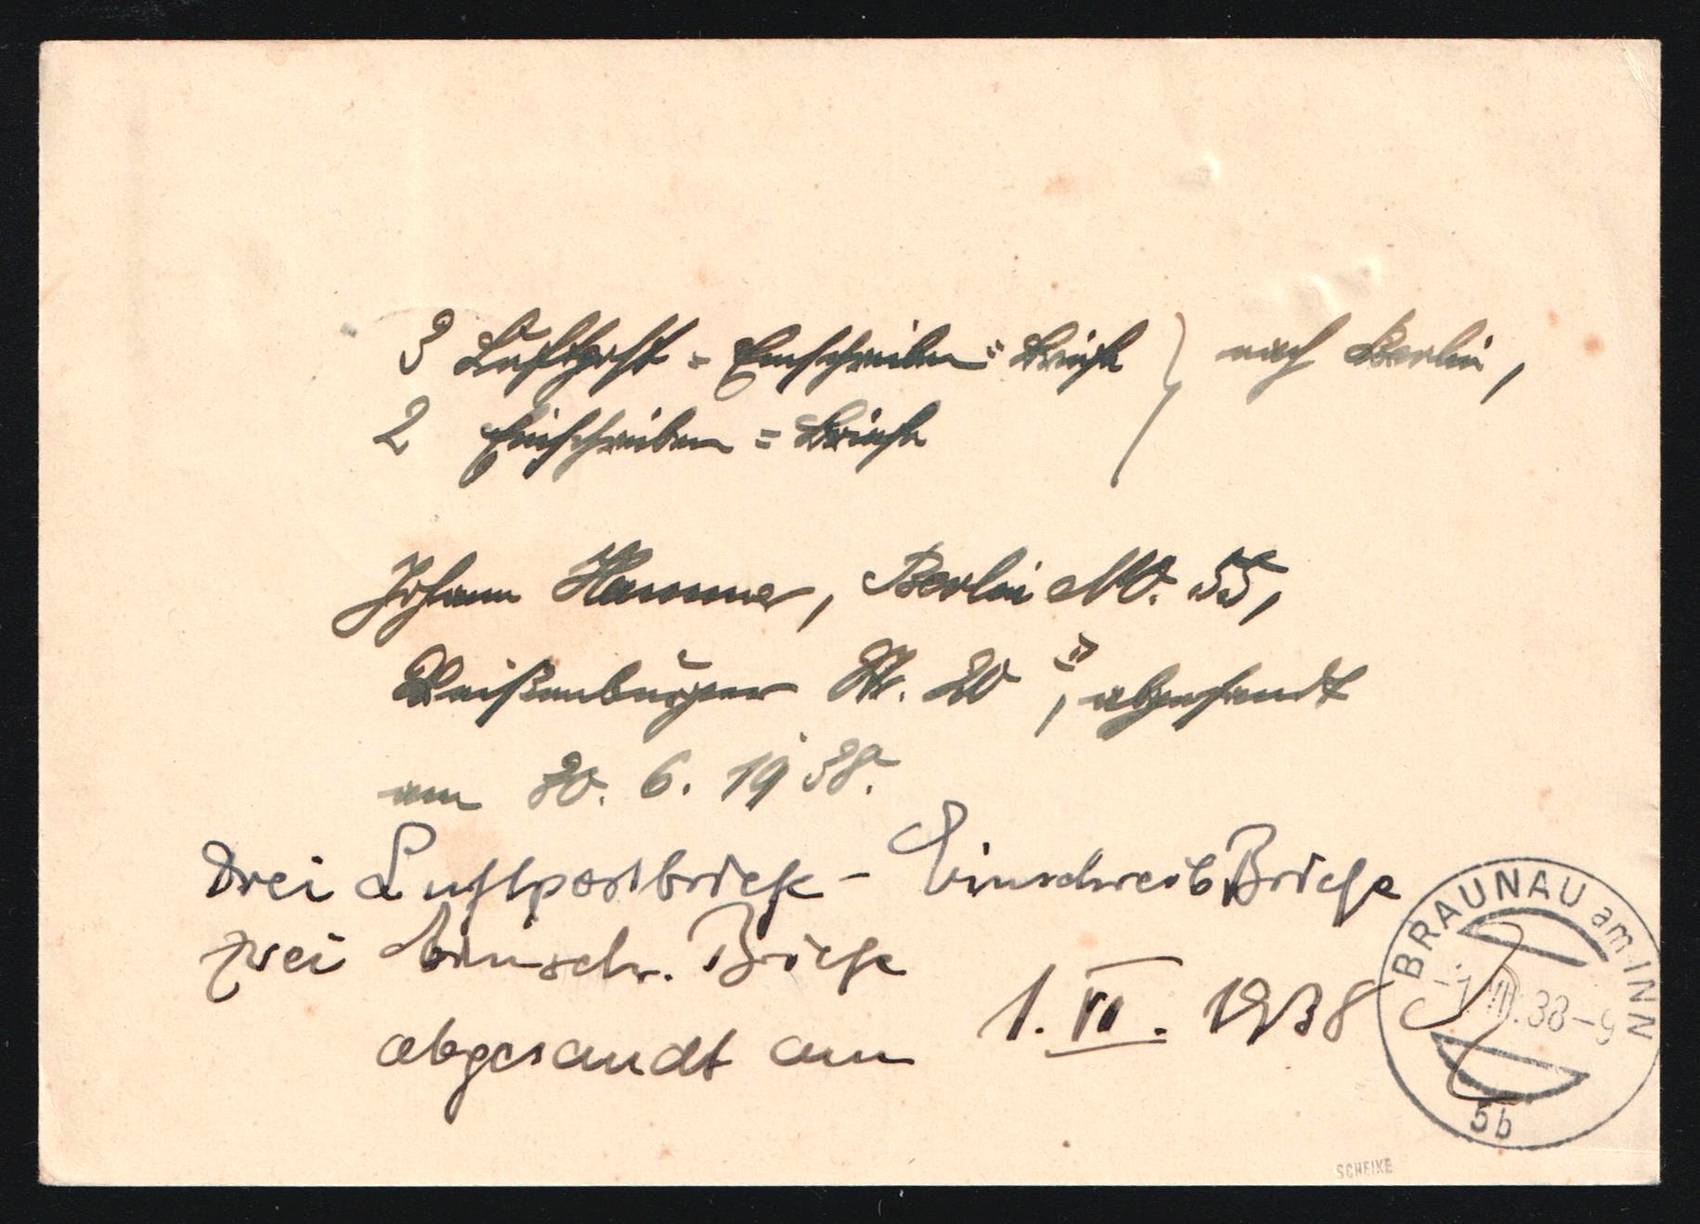 3 Luftpost = Einschreiben = Briefe } nach Berlin,
2 Einschreiben = Briefe
Johann Hammer, Berlin NO. 55,
Weißenburger Str. 20", abgesandt
am 30. 6. 1938.
Drei Luftpostbriefe - Einschreib Briefe
zwei Einschr. Briefe
abgesandt am 1. VII. 1938
BRAUNAU am INN
-1. VII. 38-9
5b
SCHEIKE